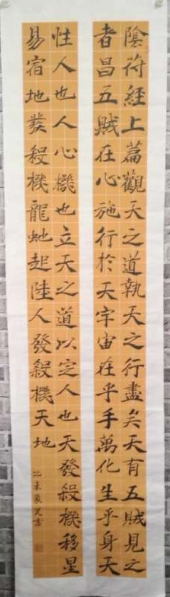 陰符經上篇觀天之道執天之行盡矣天有五賊見之
者昌五賊在心施行於天宇宙在乎手萬化生乎身天
性人也人心機也立天之道以定人也天發殺機移星
易宿地發殺機龍虵起陸人發殺機天地